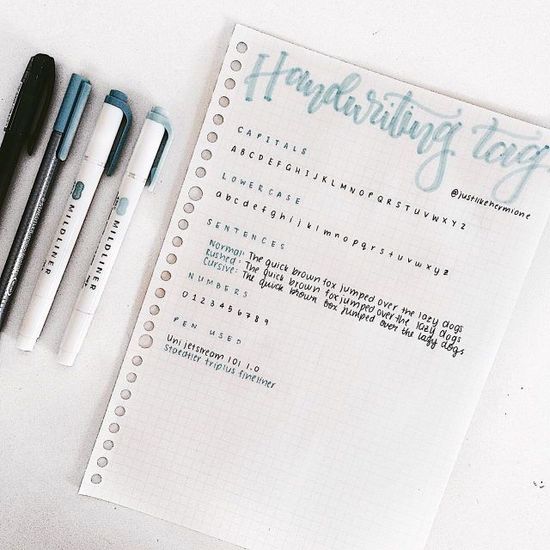 Handwriting tag
@justlikehermione
CAPITALS
A B C D E F G H I J K L M N O P Q R S T U V W X Y Z
LOWERCASE
a b c d e f g h i j k l m n o p q r s t u v w x y z
SENTENCES
Normal: The quick brown fox jumped over the lazy dogs
Rushed: The quick brown fox jumped over the lazy dogs
Cursive: The quick brown fox jumped over the lazy dogs
NUMBERS
0 1 2 3 4 5 6 7 8 9
PEN USED
Uni jetstream 101 1.0
Staedtler triplus fineliner
MILDLINER
MILDLINER